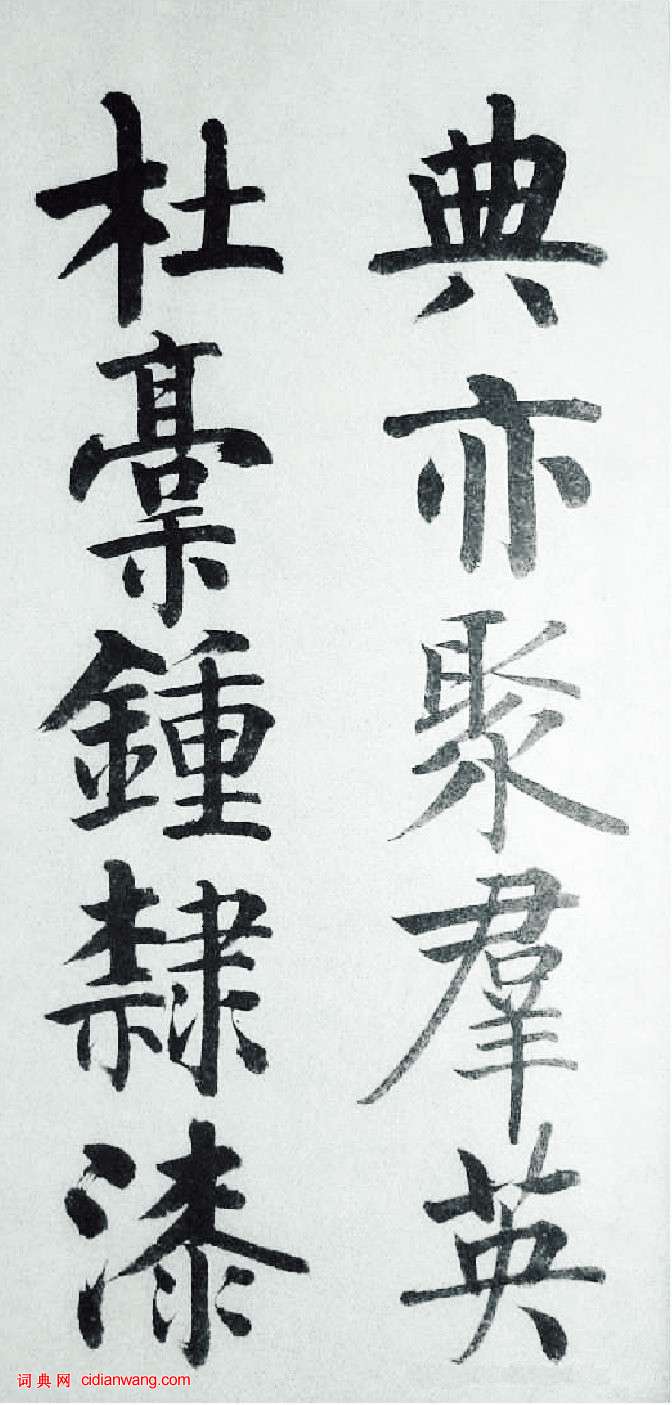 典亦聚羣英
杜稾鍾隸漆
词典网 cidianwang.com